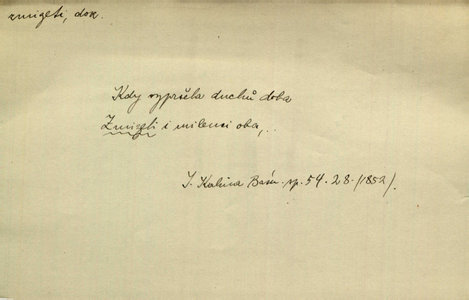 zmizeti, dok.
Kdy vypršela duchů doba
Zmizeli i milenci oba,..
J. Kalina Básn. sp. 54. 28 (1852).